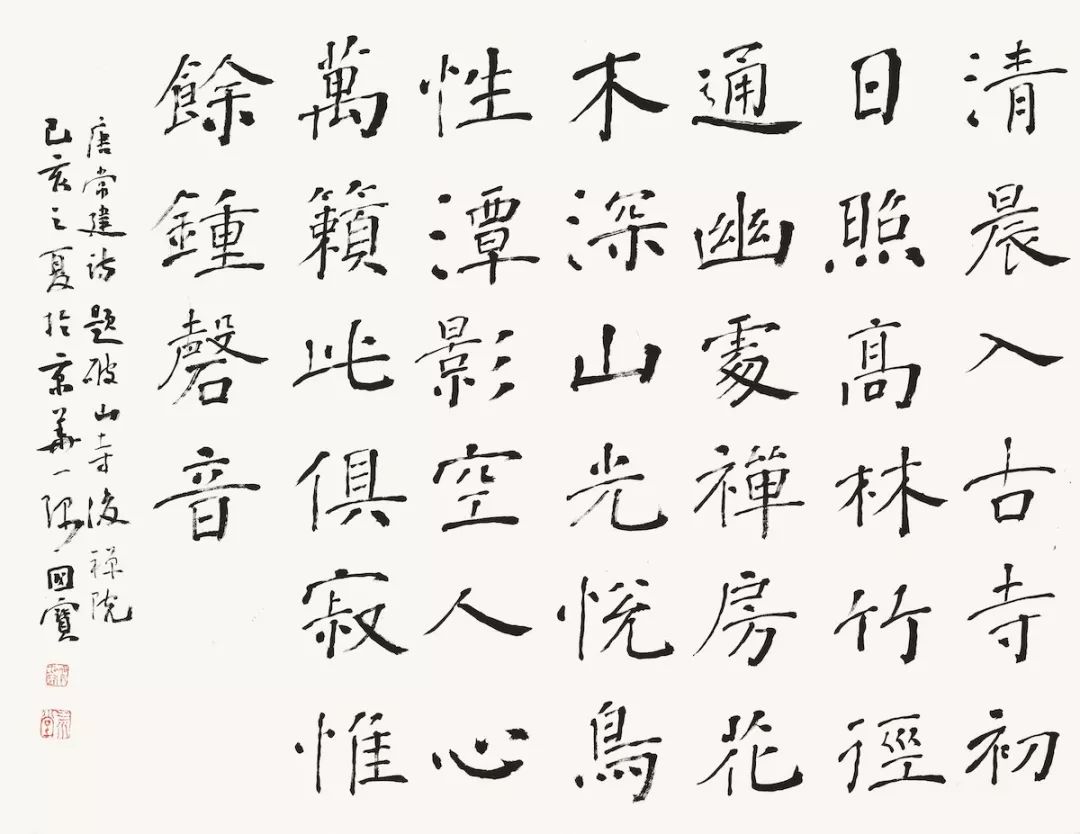 清晨入古寺初
日照高林竹徑
通幽處禪房花
木深山光悅鳥
性潭影空人心
萬籟此俱寂惟
餘鍾磬音
唐常建詩題破山寺後禪院
己亥之夏於京華一隅國寶